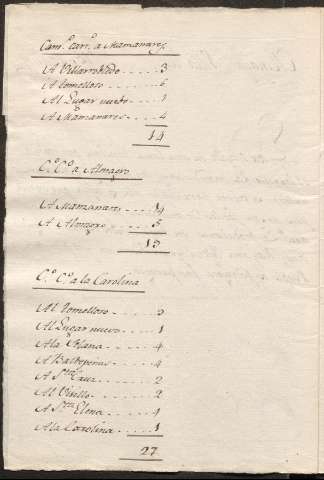 Cam.º carr.º a Manzanares
A Villarrobledo 3
A tomelloso 6
Al Lugar nuebo 1
A Manzanares 4
14
C.º C.º a Almagro
A Manzanares 14
A Almagro 5
C.º C.º a la Carolina
Al tomelloso
Al Lugar nuevo 1
A la Solana 4
A Baldepeñas 4
A S.ta Cruz 2
Al Visillo 2
A S.ta Elena 4
A la Carolina 1
27